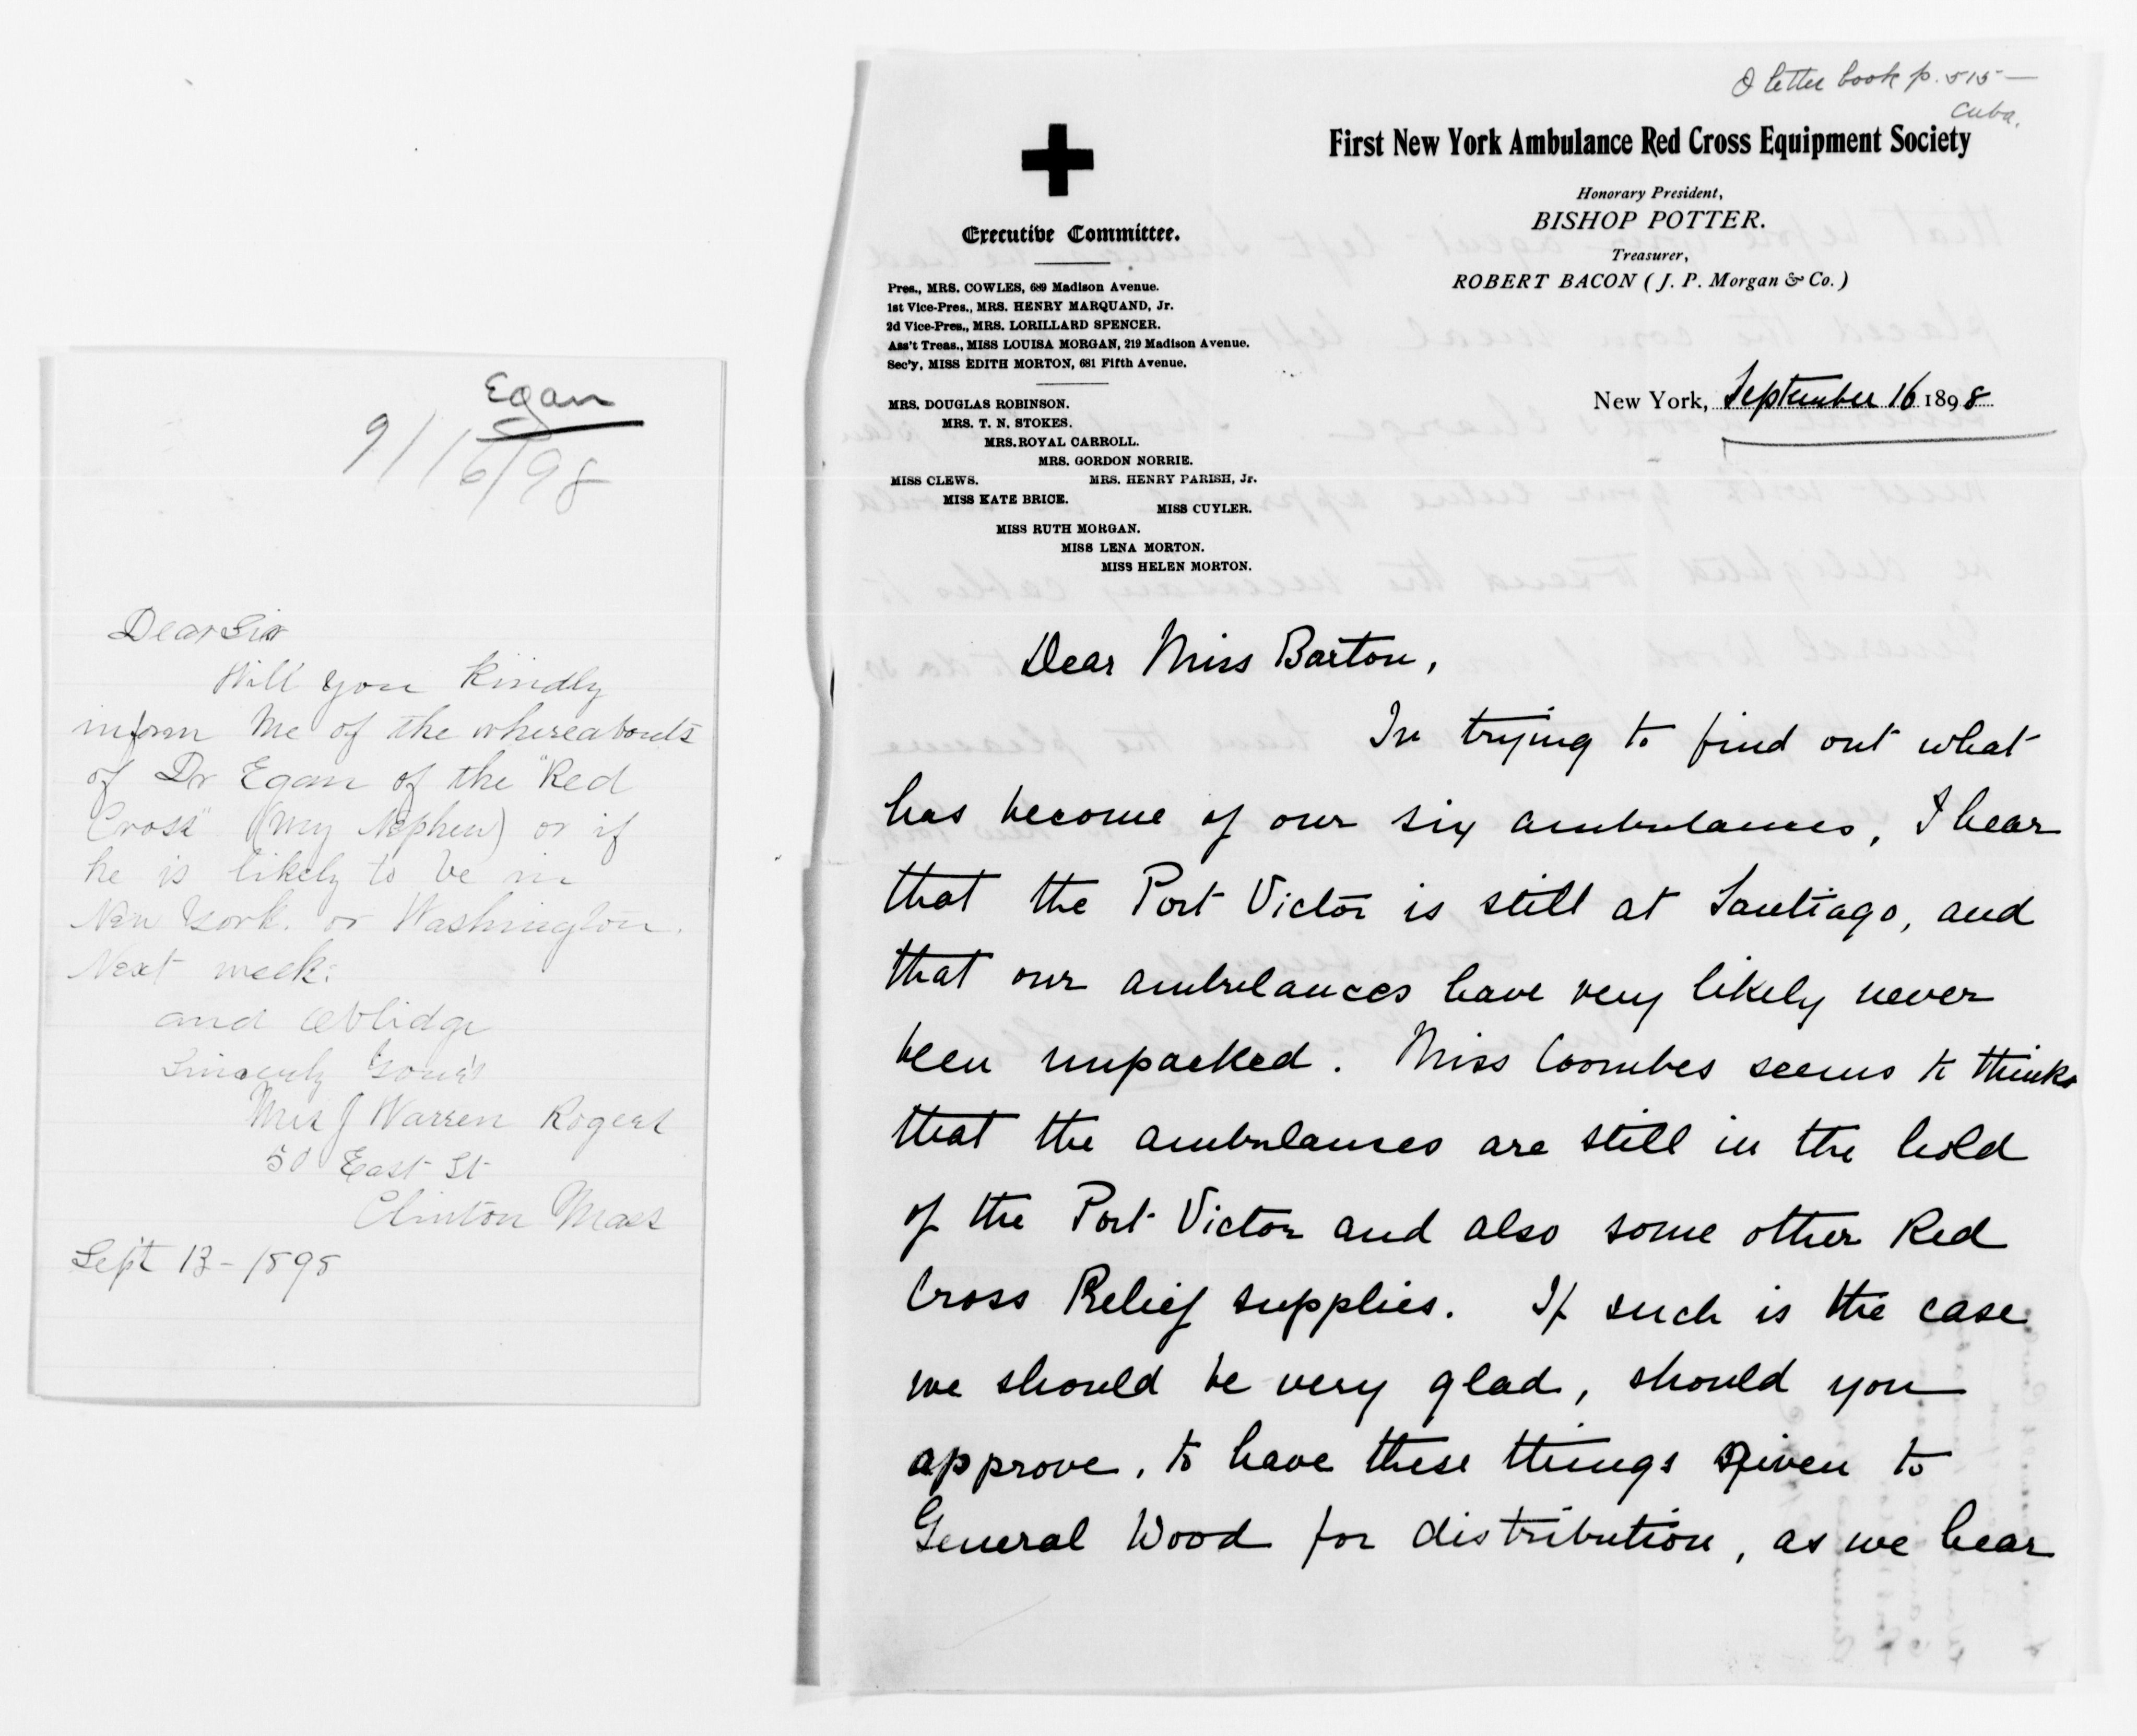 Egan
9/16/98
Dear Sir
Will you Kindly
inform Me of the whereabouts
of Dr Egan of the "Red
Cross" (My Nephew) or if
he is likely to be in
New York. or Washington.
Next week:
and Oblidge
Sincerely Your's
Mrs J Warren Rogers
50 East St
Clinton Mass
Sept 13-1898
letter book p. 515 —
Cuba.
First New York Ambulance Red Cross Equipment Society
Honorary President,
BISHOP POTTER.
Treasurer,
ROBERT BACON (J. P. Morgan & Co.)
Executive Committee.
Pres., MRS. COWLES, 689 Madison Avenue.
1st Vice-Pres., MRS. HENRY MARQUAND, Jr.
2d Vice-Pres., MRS. LORILLARD SPENCER.
Ass't Treas., MISS LOUISA MORGAN, 219 Madison Avenue.
Sec'y, MISS EDITH MORTON, 681 Fifth Avenue.
MRS. DOUGLAS ROBINSON.
MRS. T. N. STOKES.
MRS. ROYAL CARROLL.
MRS. GORDON NORRIE.
MISS CLEWS. MRS. HENRY PARISH, Jr.
MISS KATE BRICE.
MISS CUYLER.
MISS RUTH MORGAN.
MISS LENA MORTON.
MISS HELEN MORTON.
New York, September 16 1898
Dear Miss Barton,
In trying to find out what
has become of our six ambulances, I hear
that the Port Victor is still at Santiago, and
that our ambulances have very likely never
been unpacked. Miss Coombes seems to think
that the ambulances are still in the hold
of the Port Victor and also some other Red
Cross Relief supplies. If such is the case
we should be very glad, should you
approve, to have these things given to
General Wood for distribution, as we hear